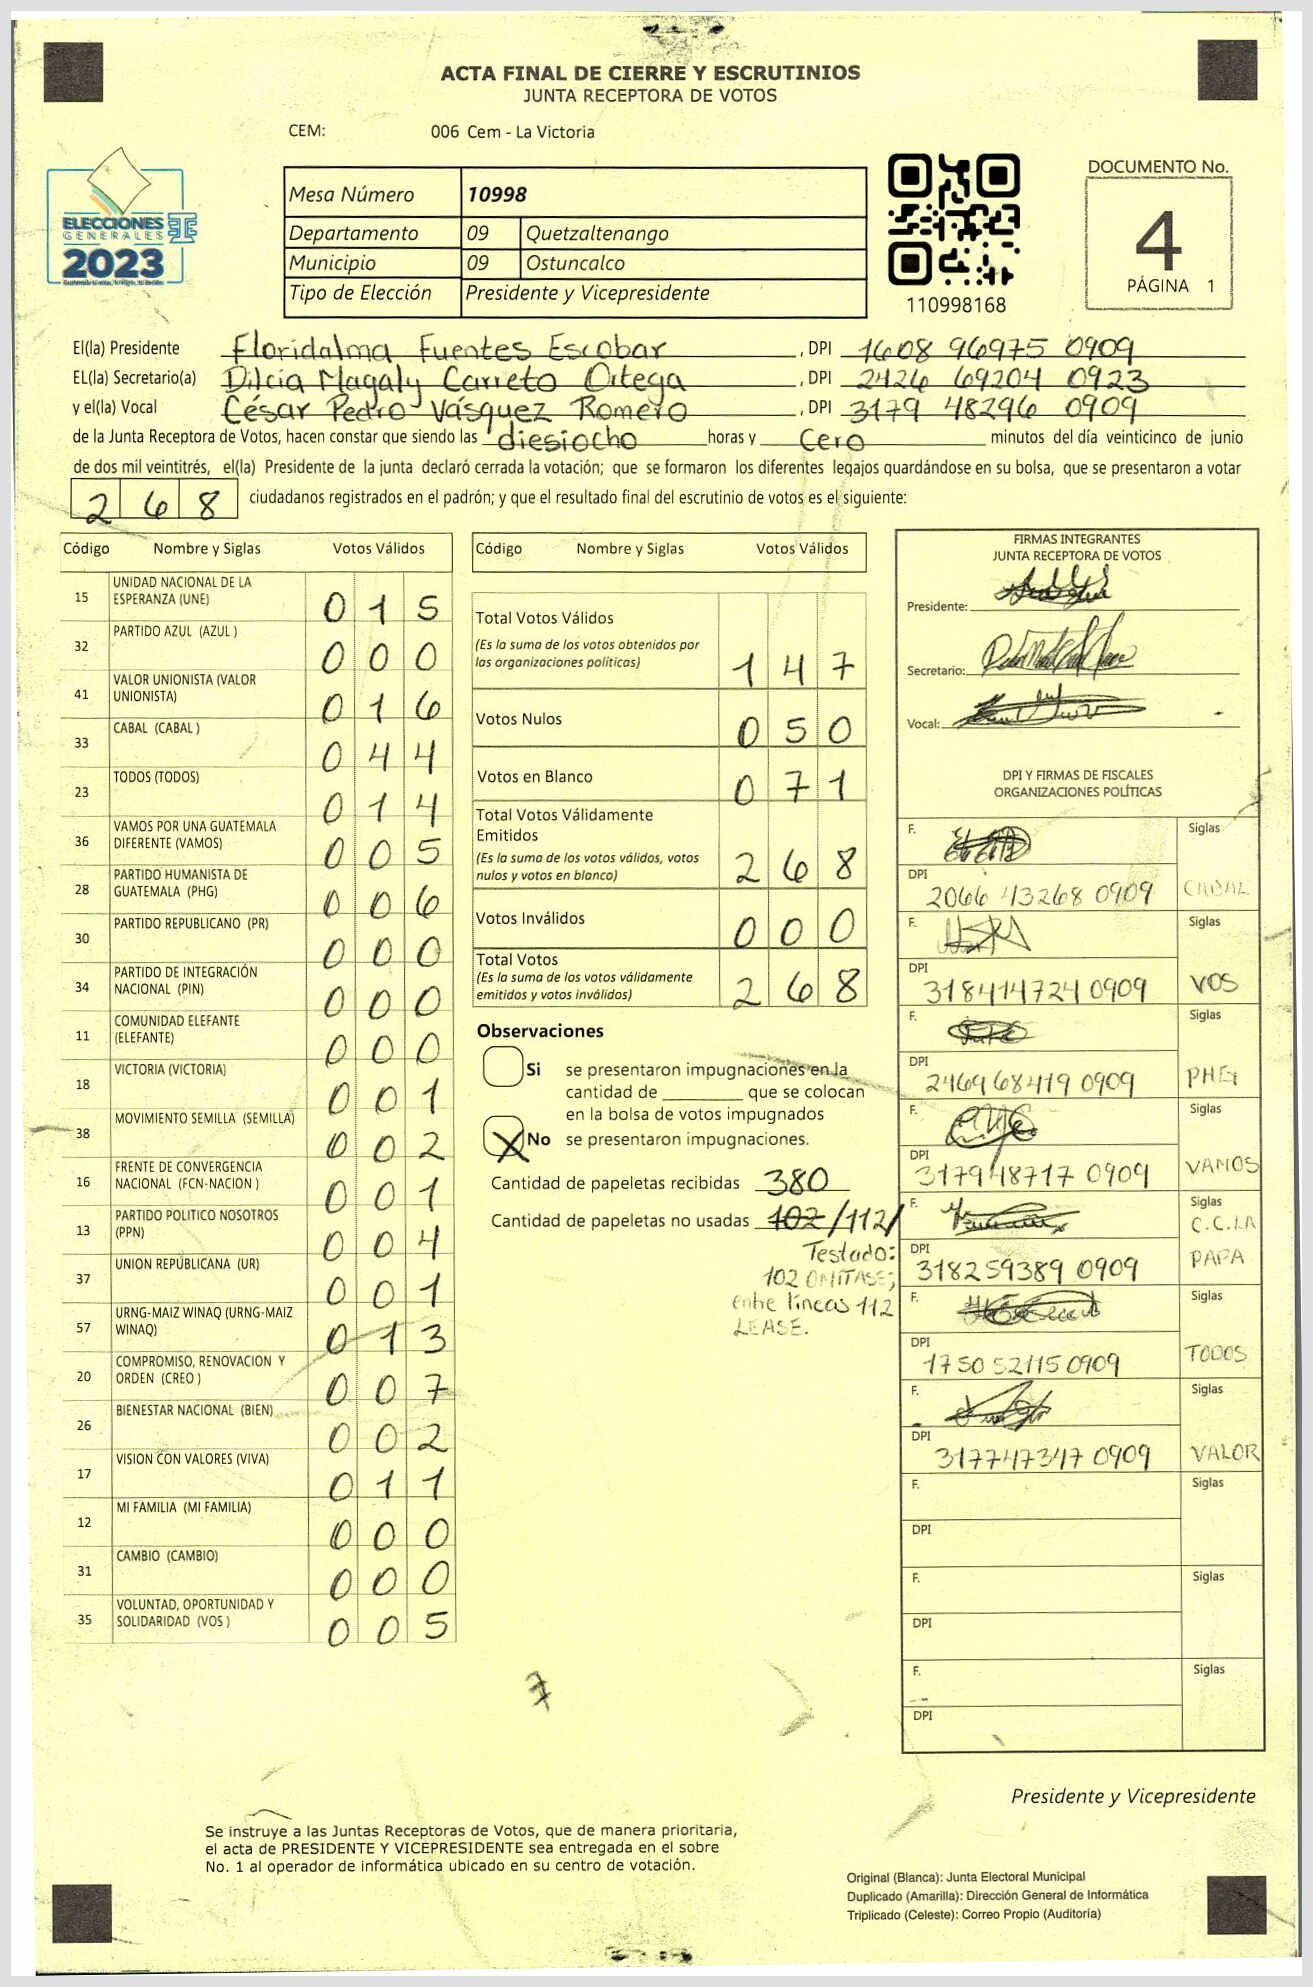 ACTA FINAL DE CIERRE Y ESCRUTINIOS
JUNTA RECEPTORA DE VOTOS
CEM: 006 Cem - La Victoria
ELECCIONES
GENERALES
2023
Mesa Número 10998
Departamento 09 Quetzaltenango
Municipio 09 Ostuncalco
Tipo de Elección Presidente y Vicepresidente
110998168
DOCUMENTO No.
4
PÁGINA 1
El(la) Presidente Floridalma Fuentes Escobar, DPI 1608 96975 0909
EL(la) Secretario(a) Dilcia Magaly Carreto Ortega, DPI 2426 69204 0923
y el(la) Vocal César Pedro Vásquez Romero, DPI 3179 48296 0909
de la Junta Receptora de Votos, hacen constar que siendo las diesiocho horas y Cero minutos del día veinticinco de junio
de dos mil veintitrés, el(la) Presidente de la junta declaró cerrada la votación; que se formaron los diferentes legajos quardándose en su bolsa, que se presentaron a votar
268 ciudadanos registrados en el padrón; y que el resultado final del escrutinio de votos es el siguiente:
Código Nombre y Siglas Votos Válidos
15 UNIDAD NACIONAL DE LA ESPERANZA (UNE) 015
32 PARTIDO AZUL (AZUL ) 000
41 VALOR UNIONISTA (VALOR UNIONISTA) 016
33 CABAL (CABAL ) 044
23 TODOS (TODOS) 014
36 VAMOS POR UNA GUATEMALA DIFERENTE (VAMOS) 005
28 PARTIDO HUMANISTA DE GUATEMALA (PHG) 006
30 PARTIDO REPUBLICANO (PR) 000
34 PARTIDO DE INTEGRACIÓN NACIONAL (PIN) 000
11 COMUNIDAD ELEFANTE (ELEFANTE) 000
18 VICTORIA (VICTORIA) 001
38 MOVIMIENTO SEMILLA (SEMILLA) 002
16 FRENTE DE CONVERGENCIA NACIONAL (FCN-NACION ) 001
13 PARTIDO POLITICO NOSOTROS (PPN) 004
37 UNION REPUBLICANA (UR) 001
57 URNG-MAIZ WINAQ (URNG-MAIZ WINAQ) 013
20 COMPROMISO, RENOVACION Y ORDEN (CREO ) 007
26 BIENESTAR NACIONAL (BIEN) 002
17 VISION CON VALORES (VIVA) 011
12 MI FAMILIA (MI FAMILIA) 000
31 CAMBIO (CAMBIO) 000
35 VOLUNTAD, OPORTUNIDAD Y SOLIDARIDAD (VOS ) 005
Código Nombre y Siglas Votos Válidos
Total Votos Válidos 147
(Es la suma de los votos obtenidos por
las organizaciones políticas)
Votos Nulos 050
Votos en Blanco 071
Total Votos Válidamente
Emitidos 268
(Es la suma de los votos válidos, votos
nulos y votos en blanco)
Votos Inválidos 000
Total Votos 268
(Es la suma de los votos válidamente
emitidos y votos inválidos)
Observaciones
Si se presentaron impugnaciones en la
cantidad de ________ que se colocan
en la bolsa de votos impugnados
X No se presentaron impugnaciones.
Cantidad de papeletas recibidas 380
Cantidad de papeletas no usadas 102 /112/
Testado:
102 OMITASE;
entre líneas 112
LEASE.
FIRMAS INTEGRANTES
JUNTA RECEPTORA DE VOTOS
Presidente:
Secretario:
Vocal:
DPI Y FIRMAS DE FISCALES
ORGANIZACIONES POLÍTICAS
F. Siglas
DPI 2066 43268 0909 CABAL
F. Siglas
DPI 318414724 0909 VOS
F. Siglas
DPI 2469 68419 0909 PHG
F. Siglas
DPI 3179 48717 0909 VAMOS
F. Siglas
C.C.I.A
DPI 318259389 0909 PAPA
F. Siglas
DPI 1750 52115 0909 TODOS
F. Siglas
DPI 317747347 0909 VALOR
F. Siglas
DPI
F. Siglas
DPI
F. Siglas
DPI
Presidente y Vicepresidente
Se instruye a las Juntas Receptoras de Votos, que de manera prioritaria,
el acta de PRESIDENTE Y VICEPRESIDENTE sea entregada en el sobre
No. 1 al operador de informática ubicado en su centro de votación.
Original (Blanca): Junta Electoral Municipal
Duplicado (Amarilla): Dirección General de Informática
Triplicado (Celeste): Correo Propio (Auditoría)